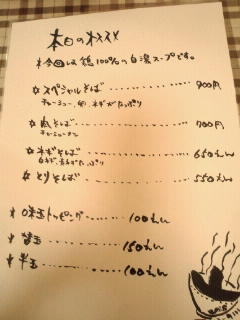 本日のオススメ
*今回は鶏100%の白湯スープです。
☆スペシャルそば 900円
チャーシュー、ネギがたっぷり
☆塩そば 700円
☆ネギそば 650えん
白ネギ、青ネギたっぷり
☆とりそば 550えん
*味玉トッピング 100えん
*替玉 150えん
*半玉 100えん